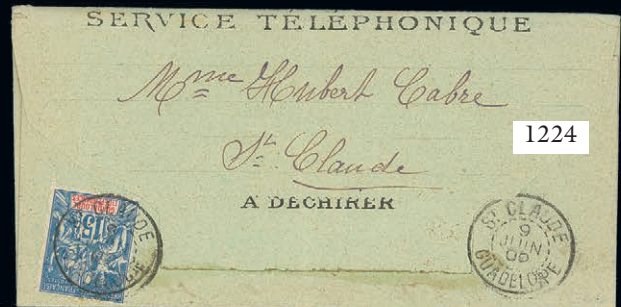 SERVICE TÉLÉPHONIQUE
Mme Hubert Cabre
St Claude
1224
A DECHIRER
15
St CLAUDE
9
JUIN
GUADELOUPE